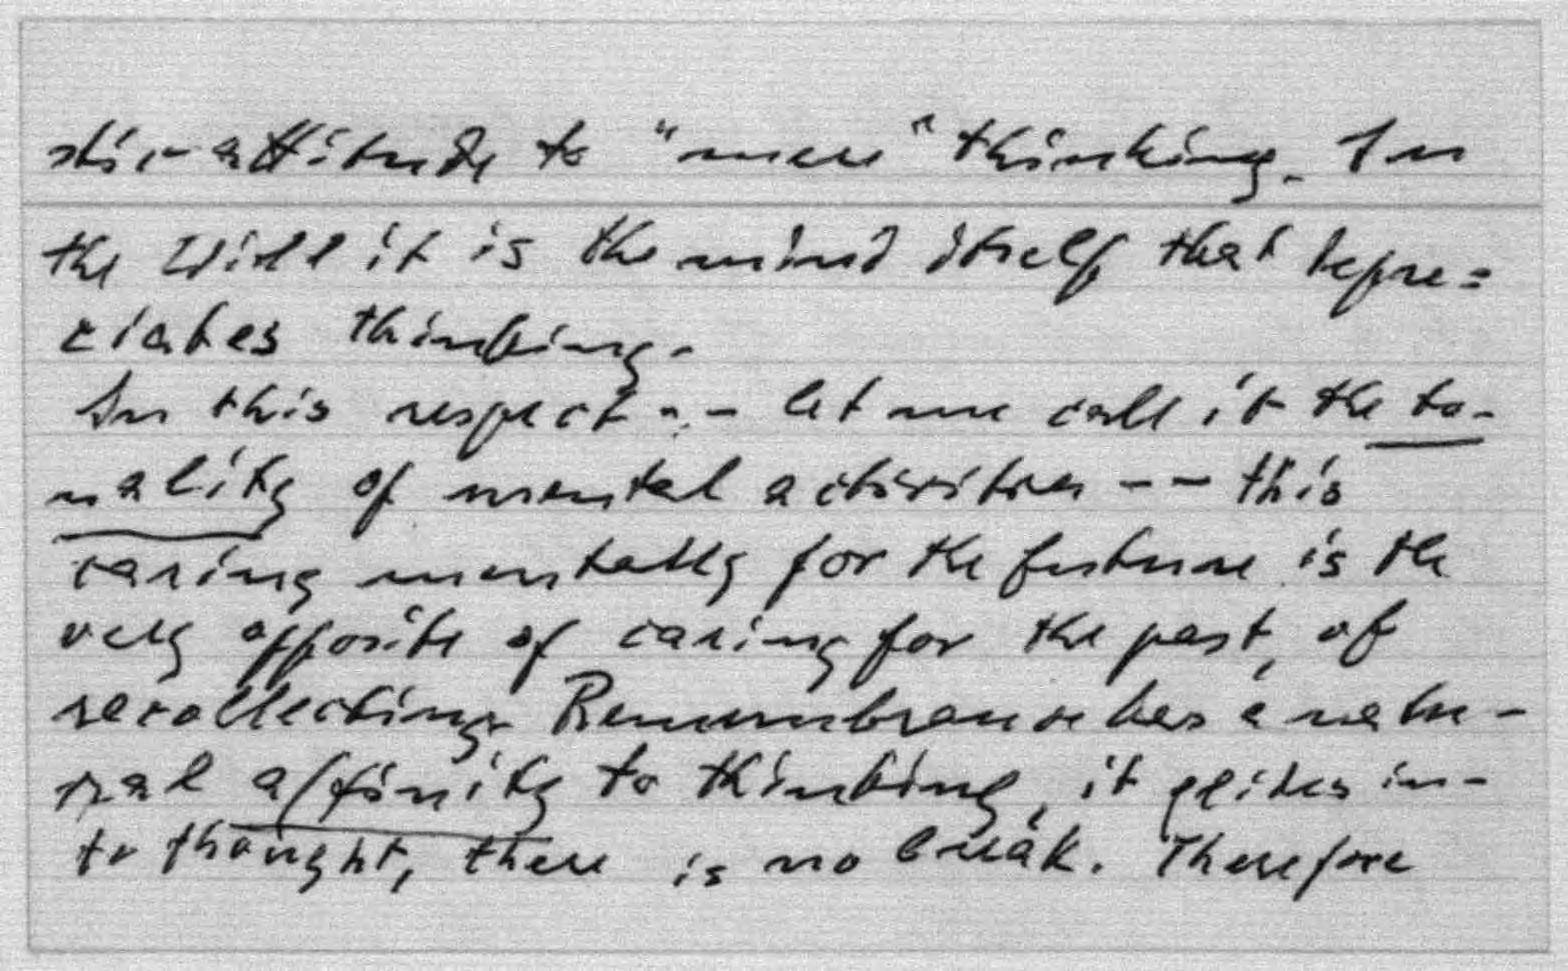 attitude to "mere" thinking. In
the Will it is the mind itself that depre=
ciates thinking.
In this respect -- let me call it the to-
nality of mental activities -- this
caring mentally for the future is the
very opposite of caring for the past, of
recollecting. Remembrance has a natu-
ral affinity to thinking, it glides in-
to thought, there is no break. Therefore